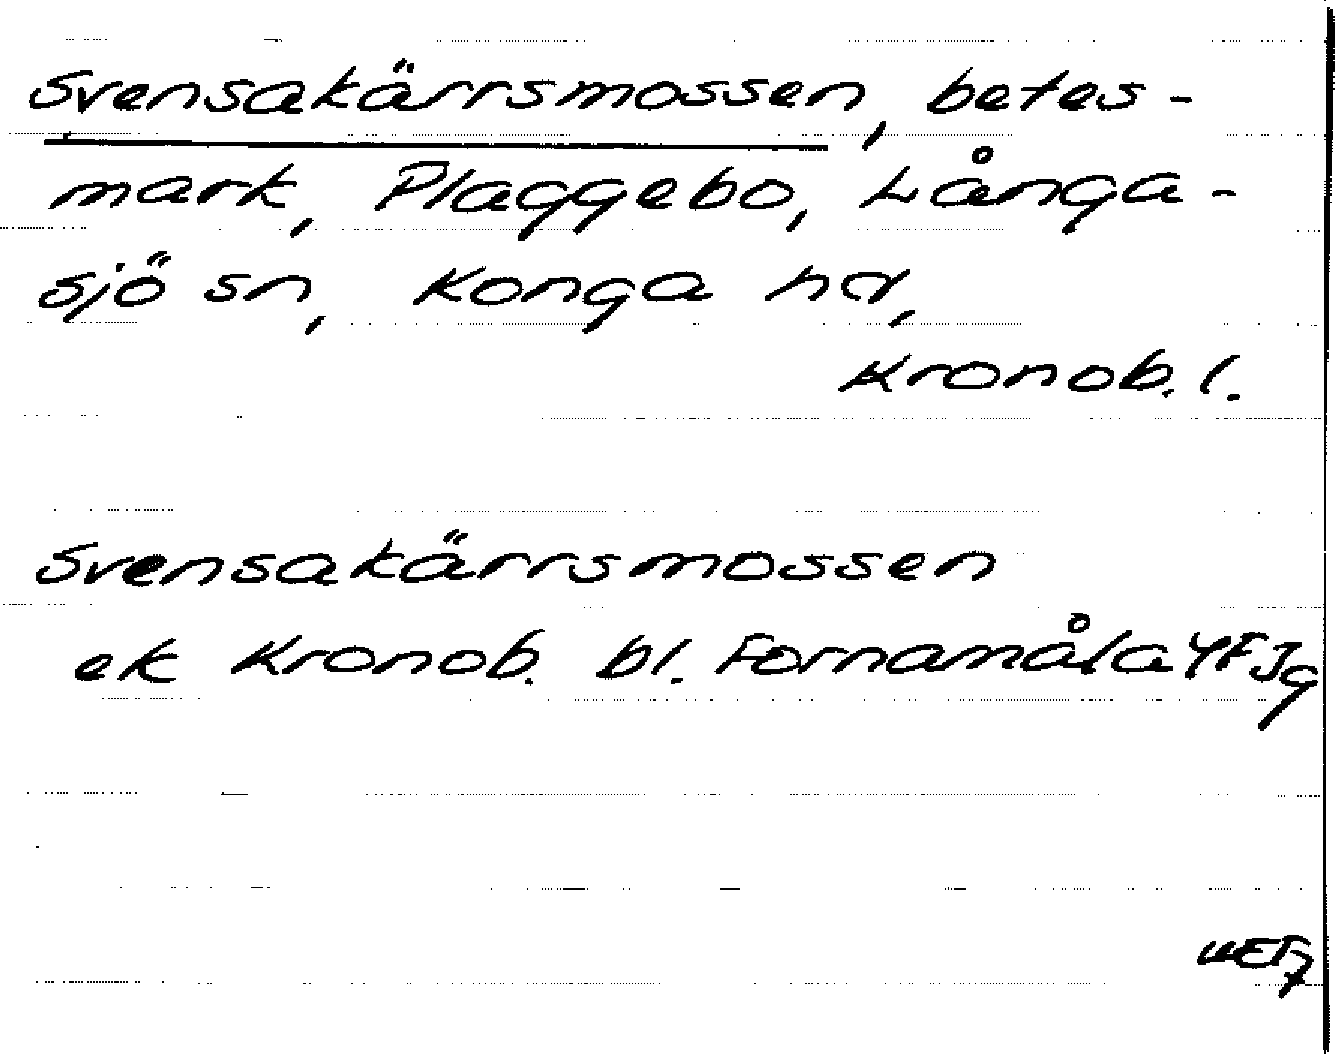 Svensakärrsmossen, betes-
mark, Plaggebo, Långa-
sjö sn, Konga hd,
Kronob. l.
Svensakärrsmossen
ek Kronob. bl. Fornamåla 4F Jg